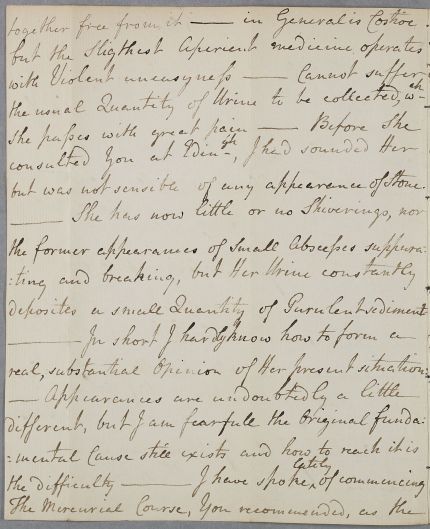 together free from it —— in General is Costive
but the Slightest Aperient medicine operates
with Violent uneasyness —— Cannot suffer
the usual Quantity of Urine to be collected, wch
She passes with great pain —— Before She
consulted You at Edingh, I had sounded Her
but was not sensible of any appearance of Stone.
—— She has now little or no Shiverings, nor
the former appearances of Small Abscesses suppura:
:ting and breaking, but Her Urine constantly
deposites a small Quantity of Purulent sediment
—— In short I hardly know how to form a
real, substantial Opinion of Her present situation:
— Appearances are undoubtedly a little
different, but I am fearfull the Original funda:
:mental Cause still exists and how to reach it is
the difficulty —— I have spoke lately of commencing
The Mercurial Course, You recommended, as the